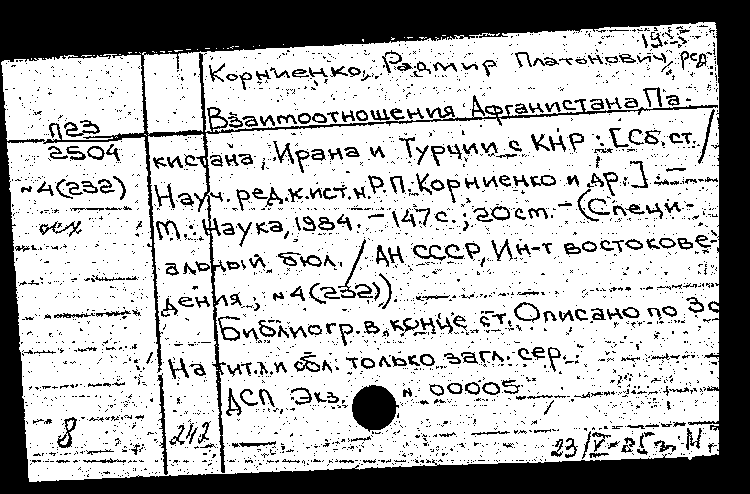 Корниенко, Радмир Платонович, ред.
Взаимоотношения Афганистана, Па-
П23
2504
№4(232)
кистана, Ирана и Турции с КНР : [Сб. ст. /
Науч. ред. к.ист.н. Р.П. Корниенко и др.] . —
М.: Наука, 1984. — 147 с. ; 20 см. — (Специ-
альный бюл. / АН СССР, Ин-т востокове-
дения ; №4(232)).
Библиогр. в конце ст. Описано по
На тит. л. и обл. только загл. сер.
ДСП Экз. № 00005
8
242